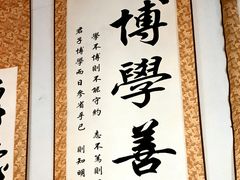 博學善
學不博則不能守約 志不篤則
君子博學而日參省乎己 則知明